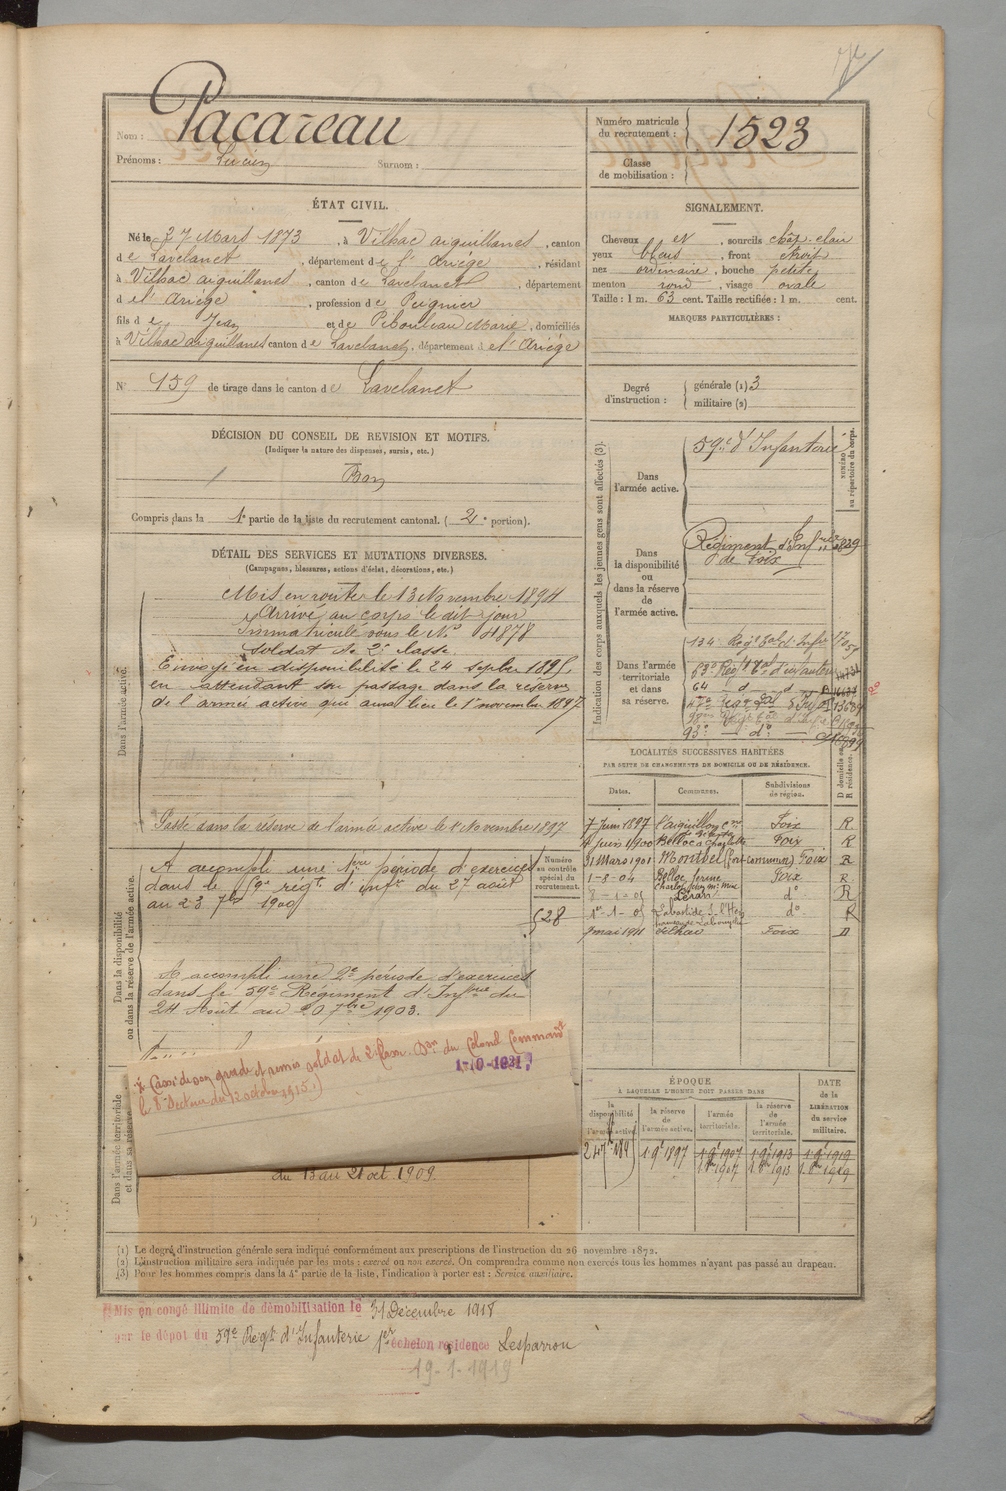 Nom : Pacareau
Prénoms : Lucien Surnom :
Numéro matricule du recrutement : 1523
Classe de mobilisation :
ÉTAT CIVIL.
Né le 27 Mars 1873, à Vilhac aiguillanes, canton
de Lavelanet, département de l'Ariège, résidant
à Vilhac aiguillanes, canton de Lavelanet, département
de l'Ariège, profession de Peignier
fils de Jean et de Pibouleau Marie, domiciliés
à Vilhac aiguillanes canton de Lavelanet, département de l'Ariège
N° 159 de tirage dans le canton de Lavelanet
SIGNALEMENT.
Cheveux et, sourcils chât. clair
yeux bleus, front étroit
nez ordinaire, bouche petite
menton rond, visage ovale
Taille : 1 m. 63 cent. Taille rectifiée : 1 m. cent.
MARQUES PARTICULIÈRES :
Degré d'instruction : générale (1) 3
militaire (2)
DÉCISION DU CONSEIL DE REVISION ET MOTIFS.
(Indiquer la nature des dispenses, sursis, etc.)
Bon
Compris dans la 1e partie de la liste du recrutement cantonal. (2e portion).
DÉTAIL DES SERVICES ET MUTATIONS DIVERSES.
(Campagnes, blessures, actions d'éclat, décorations, etc.)
Dans l'armée active.
Mis en route le 13 Novembre 1894
Arrivé au corps le dit jour
Immatriculé sous le N° 4878
Soldat de 2e classe.
Envoyé en disponibilité le 24 septbre 1895,
en attendant son passage dans la réserve
de l'armée active qui aura lieu le 1er novembre 1897
Passé dans la réserve de l'armée active le 1er Novembre 1897
Dans la disponibilité ou dans la réserve de l'armée active.
A accompli une 1ère période d'exercices
dans le 59e régt d'infie du 27 août
au 23 7bre 1900
Numéro au contrôle spécial du recrutement.
528
A accompli une 2e période d'exercices
dans le 59e Régiment d'Infrie du
24 Août au 20 7bre 1903.
Dans l'armée territoriale et dans sa réserve.
Cassé de son grade et remis soldat de 2e classe. Don du Colonel Commandt
le 8e Secteur du 12 octobre 1915.
du 13 au 21 oct 1909.
Indication des corps auxquels les jeunes gens sont affectés (3).
NUMÉRO au répertoire du corps.
Dans l'armée active.
59e d'Infanterie
Dans la disponibilité ou dans la réserve de l'armée active.
Régiment d'Infrie
de Foix
Dans l'armée territoriale et dans sa réserve.
134e Régt Tal d'Infie
63e Régt Tal d'infanterie
64 d d
93e do
LOCALITÉS SUCCESSIVES HABITÉES
PAR SUITE DE CHANGEMENTS DE DOMICILE OU DE RÉSIDENCE.
Dates. Communes. Subdivisions de région. D domicile ou R résidence.
7 Juin 1897 l'aiguillon Foix R
Juin 1900 Belloc Foix R
31 Mars 1901 Montbel Foix R
1-8-04 Belloc Foix R
8-1-05 Léran do R
1er-1-05 Labastide s. l'Hers do R
9 mai 1911 Vilhac Foix D
ÉPOQUE
À LAQUELLE L'HOMME DOIT PASSER DANS
la disponibilité de l'armée active
la réserve de l'armée active.
l'armée territoriale.
la réserve de l'armée territoriale.
DATE de la LIBÉRATION du service militaire.
1 9bre 1897 1 9bre 1907 1 9bre 1913 1 9bre 1919
(1) Le degré d'instruction générale sera indiqué conformément aux prescriptions de l'instruction du 26 novembre 1872.
(2) L'instruction militaire sera indiquée par les mots : exercé ou non exercé. On comprendra comme non exercés tous les hommes n'ayant pas passé au drapeau.
(3) Pour les hommes compris dans la 4e partie de la liste, l'indication à porter est : Service auxiliaire.
Mis en congé illimité de démobilisation le 31 Décembre 1918
par le dépôt du 59e Régt d'Infanterie 1er échelon résidence Lesparrou
19-1-1919